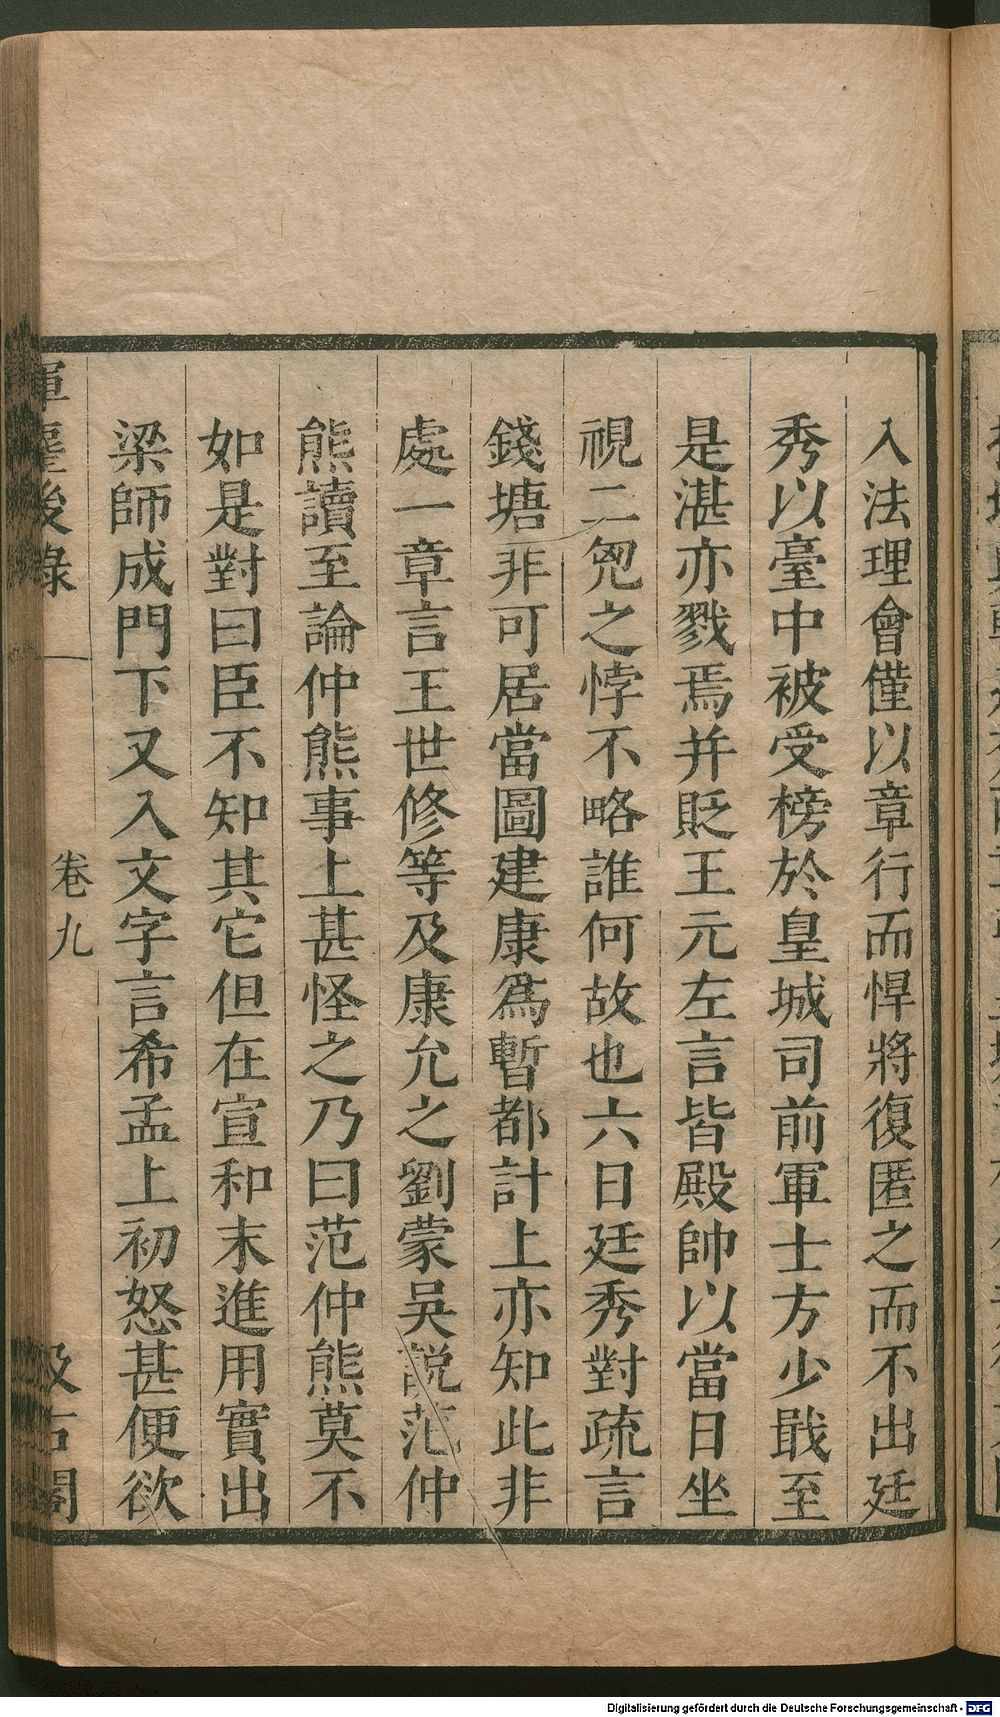 入法理會僅以章行而悍將復匿之而不出廷
秀以臺中被受榜於皇城司前軍士方少戢至
是湛亦戮焉并貶王元左言皆殿帥以當日坐
視二兇之悖不略誰何故也六日廷秀對疏言
錢塘非可居當圖建康爲暫都計上亦知此非
處一章言王世修等及康允之劉蒙吴説范仲
熊讀至論仲熊事上甚怪之乃曰范仲熊莫不
如是對曰臣不知其它但在宣和末進用實出
梁師成門下又入文字言希孟上初怒甚便欲
揮麈後錄
卷九
汲古閣
Digitalisierung gefördert durch die Deutsche Forschungsgemeinschaft - DFG